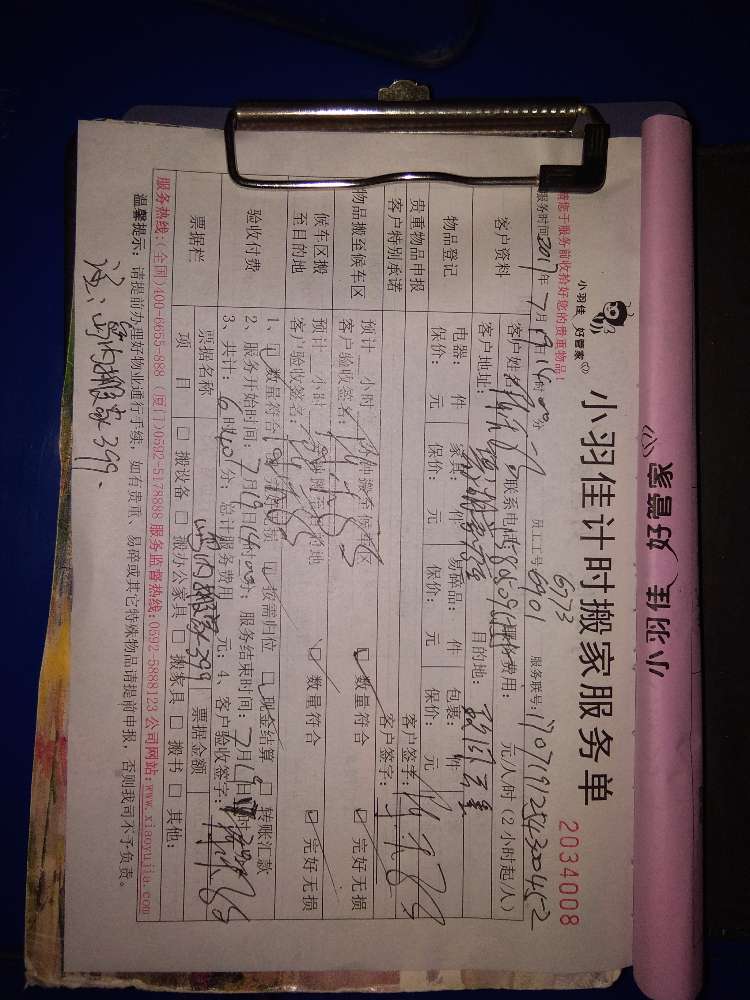 小羽佳 好管家
小羽佳 好管家
小羽佳计时搬家服务单
2034008
请您于服务前收拾好您的贵重物品!
服务时间2017年7月19日14时00分 员工工号: 6901 6773 服务联号:
客户资料
客户姓名: 联系电话: 服务费用: 元/人/时(2小时起/人)
客户地址: 目的地:
物品登记
电器: 件 家具: 件 易碎品: 件 包裹: 件
保价: 元 保价: 元 保价: 元 保价: 元
贵重物品申报
客户特别承诺
客户签字:
物品搬至候车区
预计 小时 分钟搬至候车区 数量符合 完好无损
客户验收签名: 客户签字:
候车区搬
至目的地
预计 小时 数量符合 完好无损
客户验收签名:
验收付费
1、数量符合 按需归位 现金结算 转账汇款
2、服务开始时间: 7月19日14时00分; 服务结束时间: 7月19日 时
3、共计: 6时40分, 总计服务费用 元; 4、客户验收签字:
票据栏
票据名称 岛内搬家399 票据金额
项 目 搬设备 搬办公家具 搬家具 搬书 其他:
服务热线:(全国)400-6655-888 (厦门)0592-5178888 服务监督热线:0592-5888123 公司网站:www.xiaoyujia.com
温馨提示: 请提前办理好物业通行手续, 如有贵重、易碎或其它特殊物品请提前申报, 否则我司不予负责。
注: 岛内搬家399.